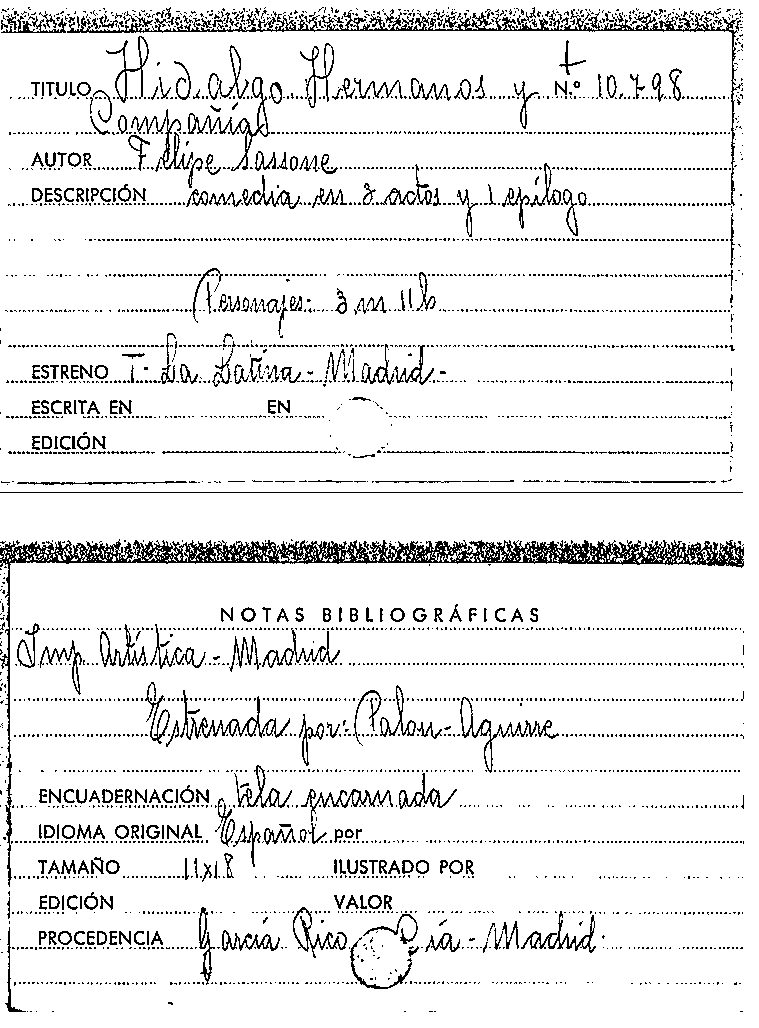 TITULO Hidalgo Hermanos y N.º 10.798
Compañía
AUTOR Felipe Sassone
DESCRIPCIÓN comedia en 3 actos y 1 epílogo
Personajes: 3 m 11 h
ESTRENO T. La Latina - Madrid -
ESCRITA EN EN
EDICIÓN
NOTAS BIBLIOGRÁFICAS
Imp Artística - Madrid
Estrenada por: Palou - Aguirre
ENCUADERNACIÓN tela encarnada
IDIOMA ORIGINAL Español por
TAMAÑO 11x18 ILUSTRADO POR
EDICIÓN VALOR
PROCEDENCIA García Rico Cía - Madrid.